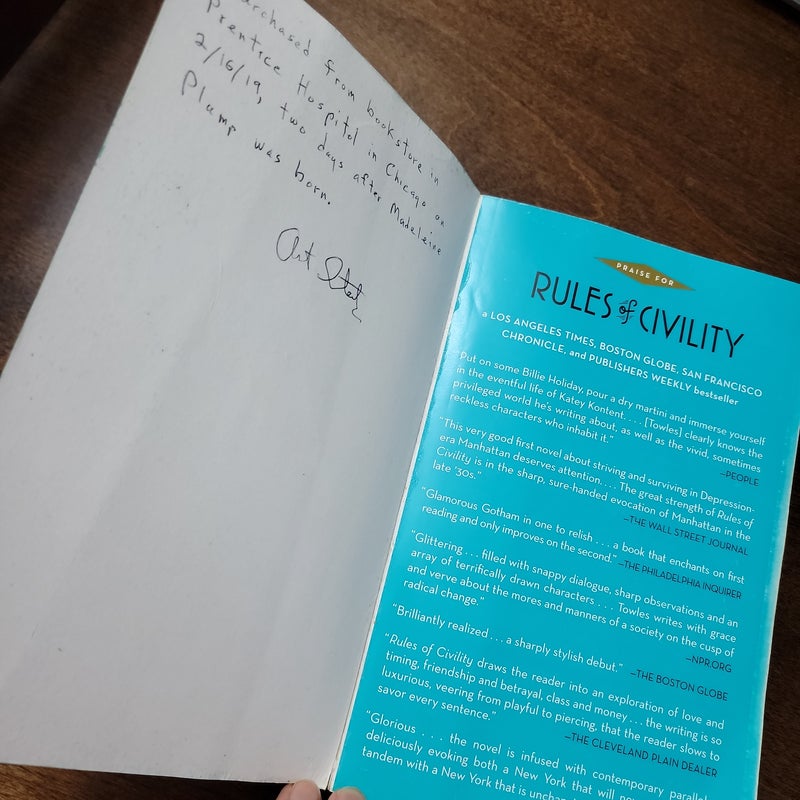 purchased from bookstore in
Prentice Hospital in Chicago on
2/16/19, two days after Madeleine
Plump was born.
Art
PRAISE FOR
RULES of CIVILITY
a LOS ANGELES TIMES, BOSTON GLOBE, SAN FRANCISCO
CHRONICLE, and PUBLISHERS WEEKLY bestseller
"Put on some Billie Holiday, pour a dry martini and immerse yourself
in the eventful life of Katey Kontent. . . . [Towles] clearly knows the
privileged world he's writing about, as well as the vivid, sometimes
reckless characters who inhabit it."
—PEOPLE
"This very good first novel about striving and surviving in Depression-
era Manhattan deserves attention. . . . The great strength of Rules of
Civility is in the sharp, sure-handed evocation of Manhattan in the
late '30s."
—THE WALL STREET JOURNAL
"Glamorous Gotham in one to relish . . . a book that enchants on first
reading and only improves on the second." —THE PHILADELPHIA INQUIRER
"Glittering . . . filled with snappy dialogue, sharp observations and an
array of terrifically drawn characters . . . Towles writes with grace
and verve about the mores and manners of a society on the cusp of
radical change."
—NPR.ORG
"Brilliantly realized . . . a sharply stylish debut." —THE BOSTON GLOBE
"Rules of Civility draws the reader into an exploration of love and
timing, friendship and betrayal, class and money . . . the writing is so
luxurious, veering from playful to piercing, that the reader slows to
savor every sentence."
—THE CLEVELAND PLAIN DEALER
"Glorious . . . the novel is infused with contemporary
deliciously evoking both a New York that will
tandem with a New York that is